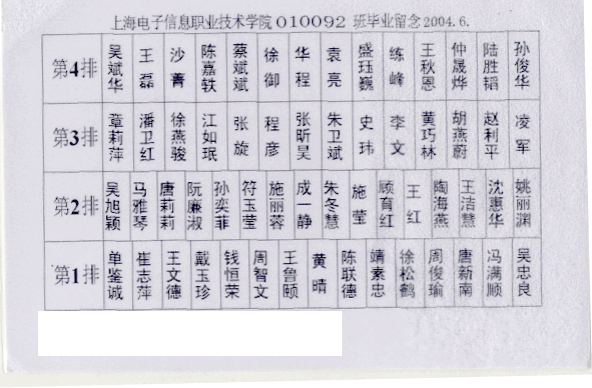 上海电子信息职业技术学院010092 班毕业留念2004.6.
第4排 吴斌华 王磊 沙菁 陈嘉轶 蔡斌斌 徐御 华程 袁亮 盛珏巍 练峰 王秋恩 仲晟烨 陆胜韬 孙俊华
第3排 章莉萍 潘卫红 徐燕骏 江如珉 张旋 程彦 张昕昊 朱卫斌 史玮 李文 黄巧林 胡燕蔚 赵利平 凌军
第2排 吴旭颖 马雅琴 唐莉莉 阮廉淑 孙奕菲 符玉莹 施丽蓉 成一静 朱冬慧 施莹 顾育红 王红 陶海燕 王洁慧 沈惠华 姚丽渊
第1排 单鉴诚 崔志萍 王文德 戴玉珍 钱恒荣 周智文 王鲁颐 黄晴 陈联德 靖素忠 徐松鹤 周俊瑜 唐新南 冯满顺 吴忠良